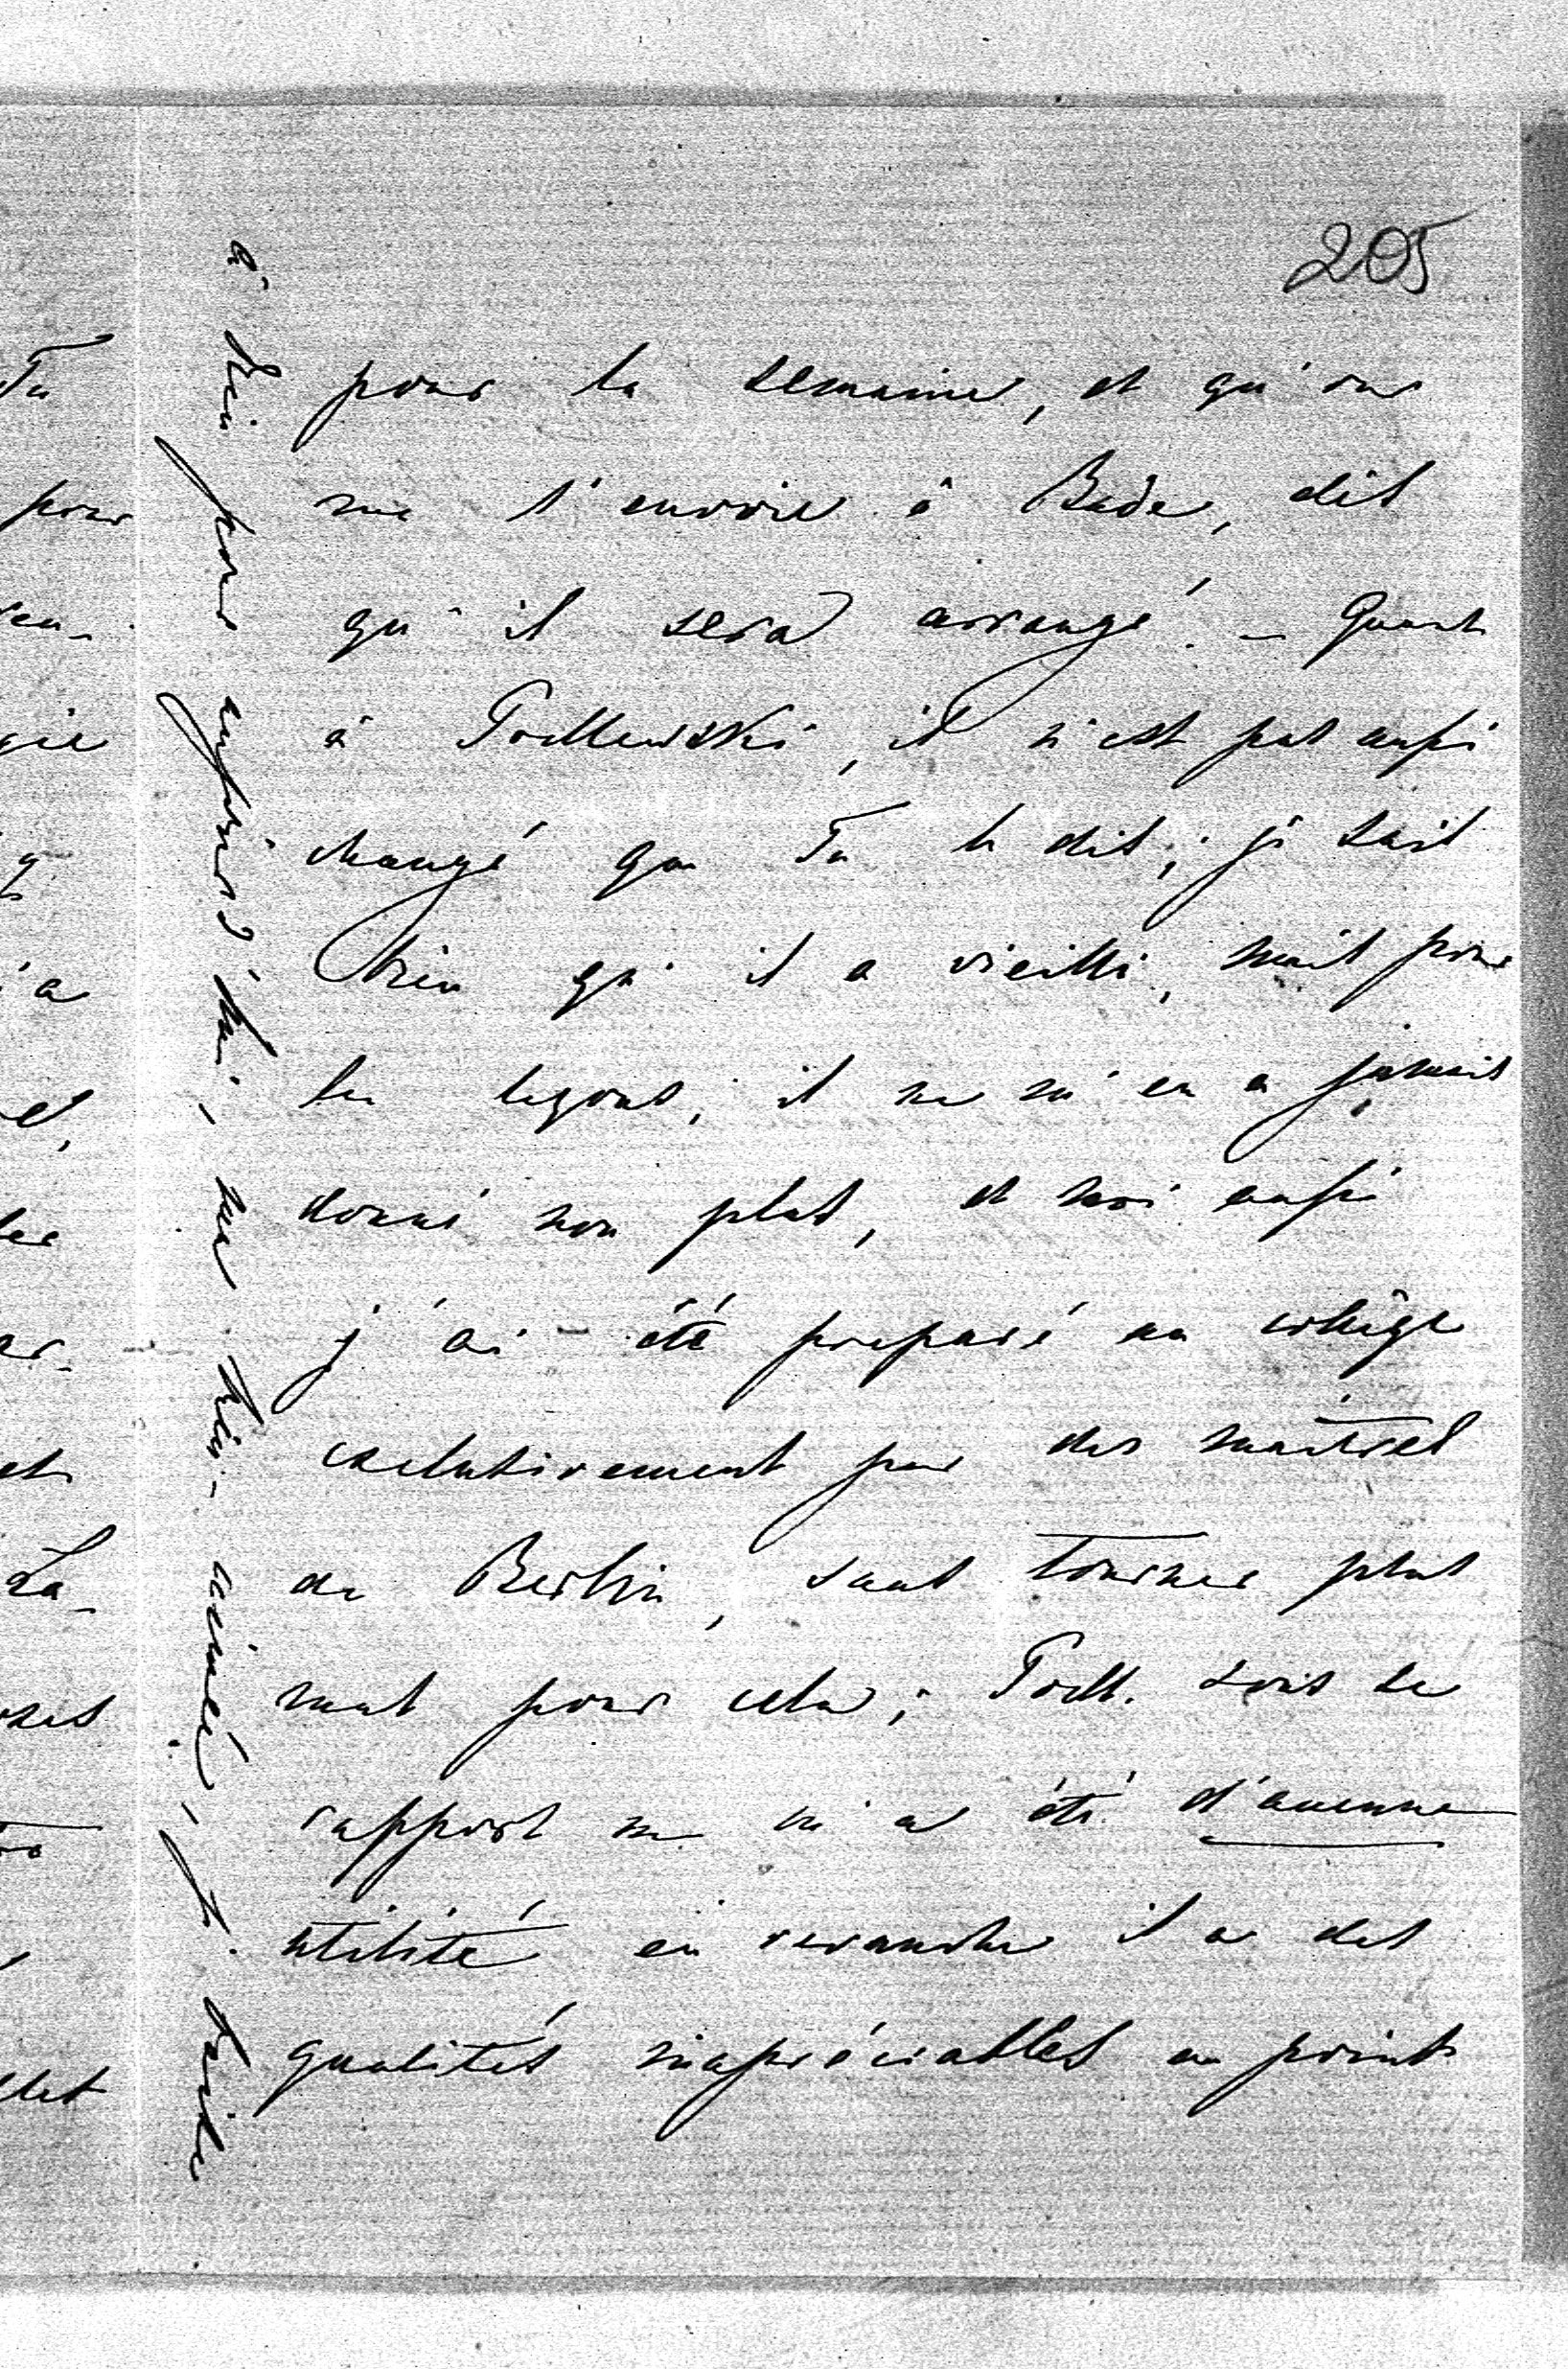 205
pour la semaine, et qu'on
me l'envoie à Bade, dès
qu'il sera arrangé. – Quant
à Podlewski, il n'est pas aussi
changé que Tu le dis; je sais
bien qu'il a vieilli, mais pour
les leçons, il ne m'en a jamais
donné non plus, et moi aussi
j'ai été preparé au collège
exclusivement par des maîtres
de Berlin, sans tourner plus
mal pour cela; Podl. sous ce
rapport ne m'a été d'aucune
utilité en revanche il a des
qualités inapréciables au point
à lui pour aujourd'hui, ma bien-aimée,
Tu
pour
gie
a
La-